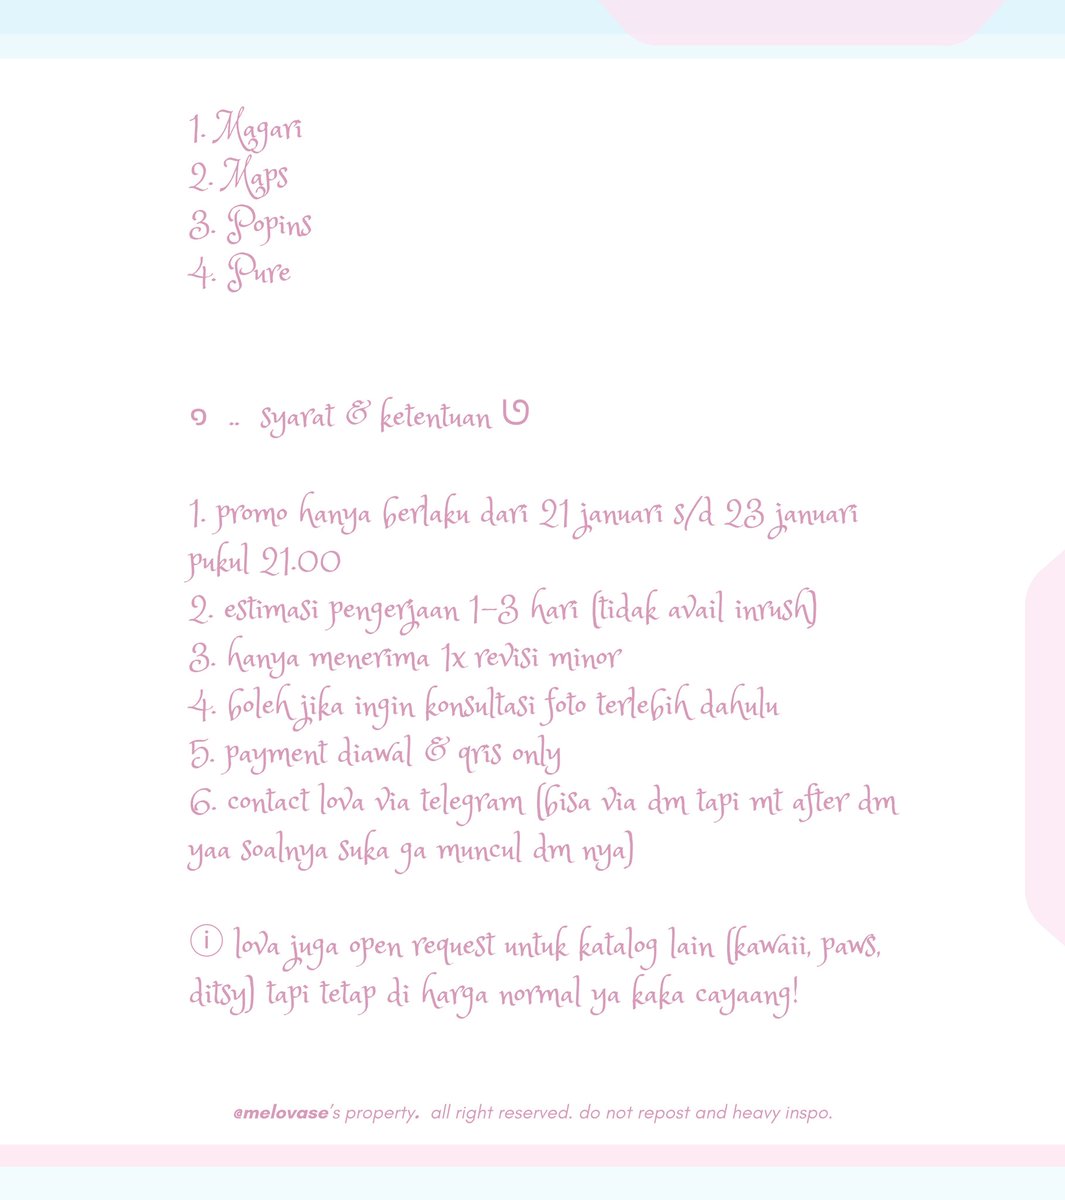 1. Magari
2. Maps
3. Popins
4. Pure
.. syarat & ketentuan
1. promo hanya berlaku dari 21 januari s/d 23 januari
pukul 21.00
2. estimasi pengerjaan 1-3 hari (tidak avail inrush)
3. hanya menerima 1x revisi minor
4. boleh jika ingin konsultasi foto terlebih dahulu
5. payment diawal & qris only
6. contact lova via telegram (bisa via dm tapi mt after dm
yaa soalnya suka ga muncul dm nya)
ⓘ lova juga open request untuk katalog lain (kawaii, paws,
ditsy) tapi tetap di harga normal ya kaka cayaang!
@melovase's property. all right reserved. do not repost and heavy inspo.